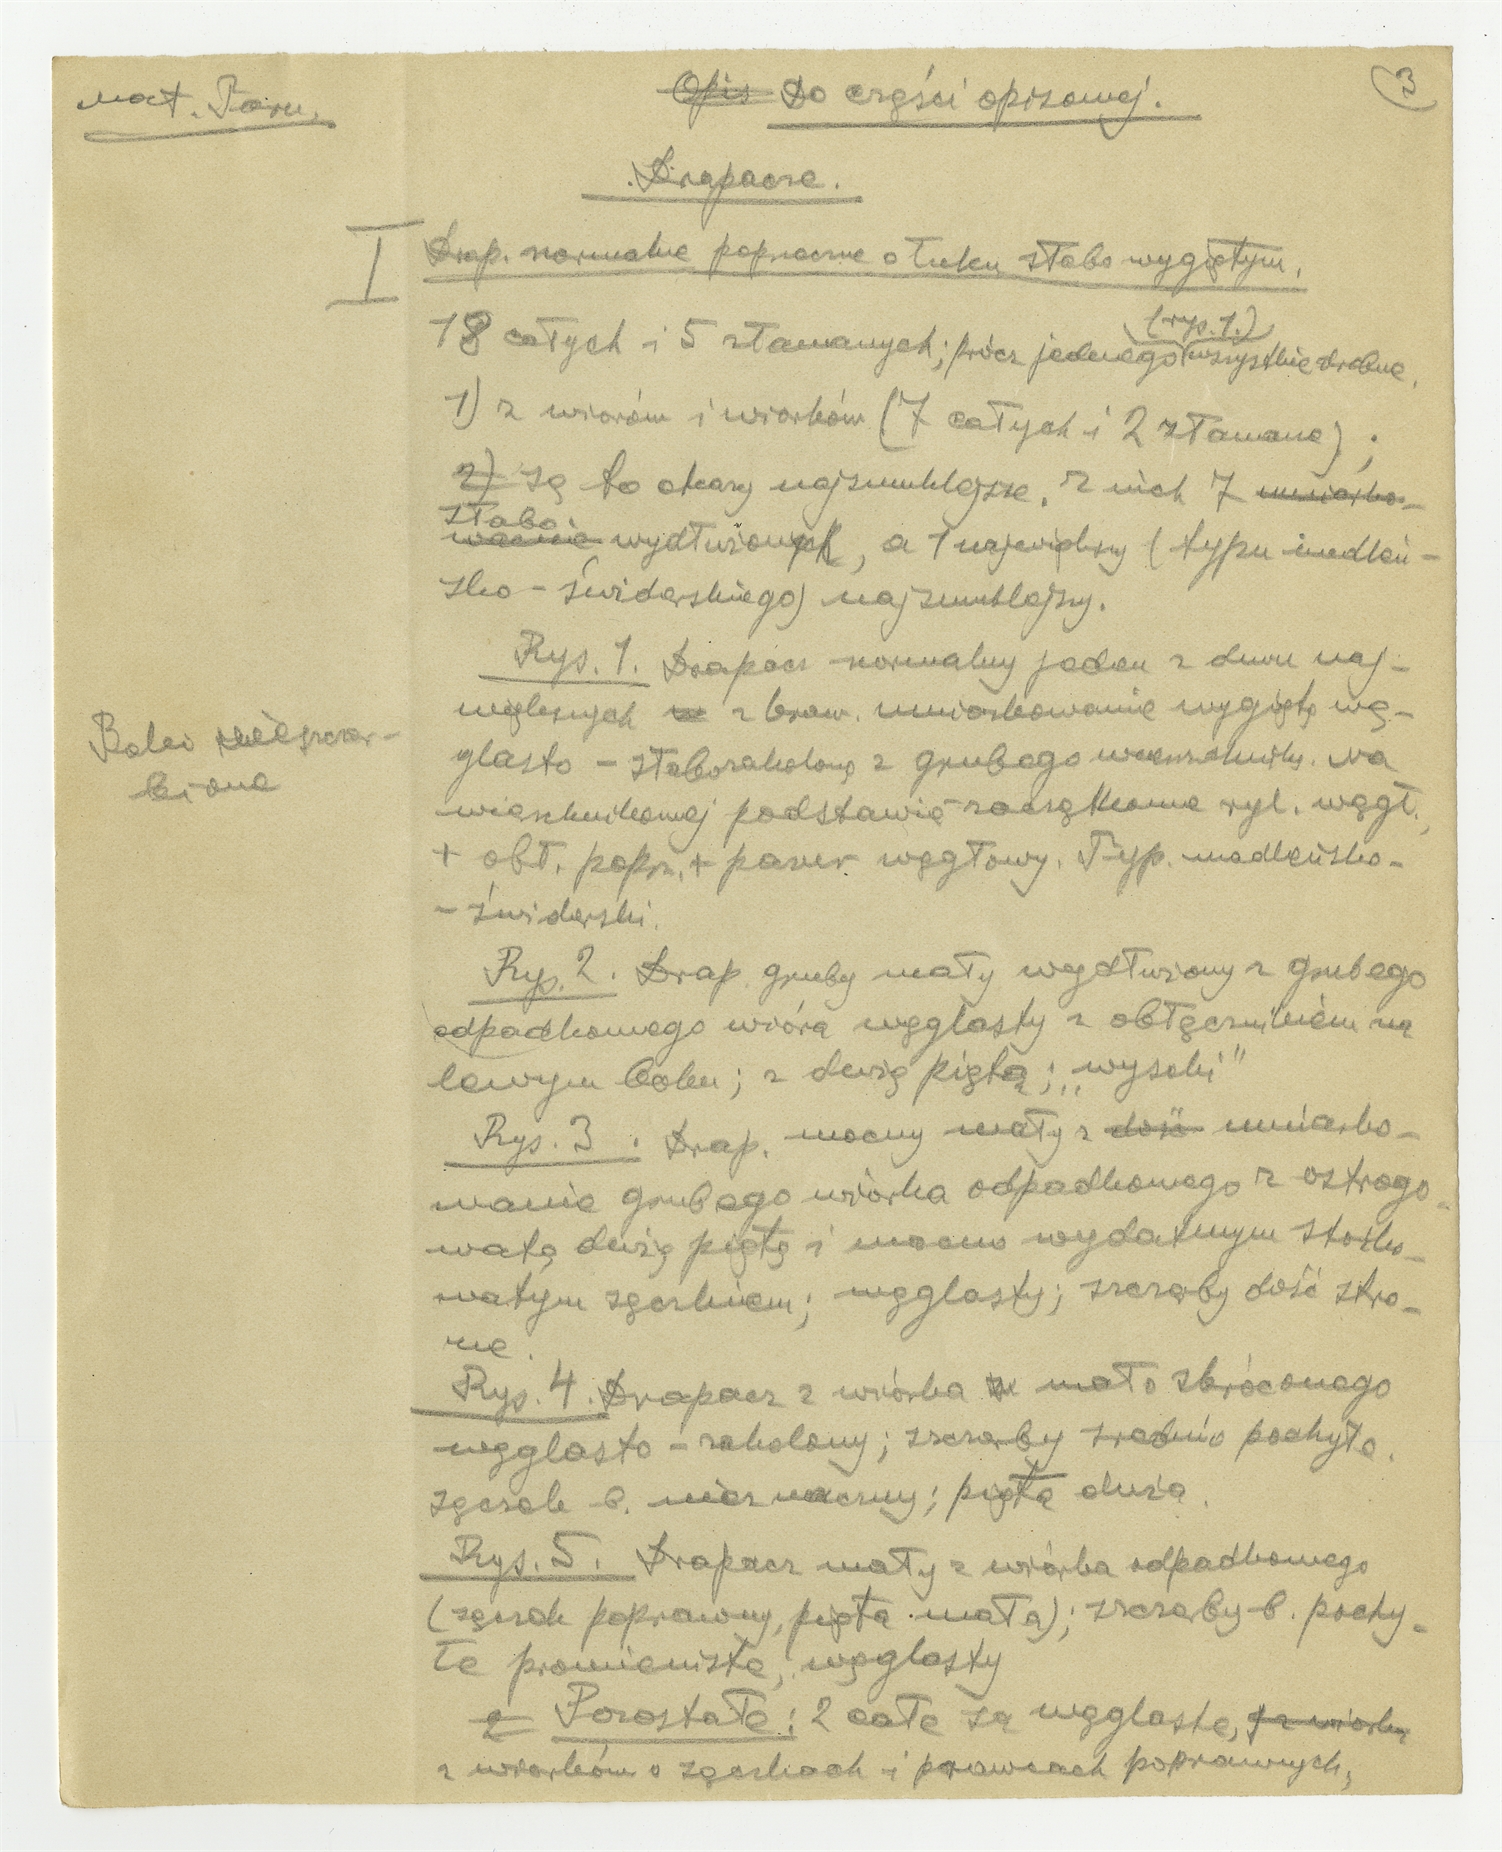 mat. Tarn.
Opis Do części opisowej.
3
Drapacze.
I
Drap. normalne poprzeczne o łuku słabo wygiętym.
(rys. 1.)
18 całych i 5 złamanych; prócz jednego wszystkie drobne.
1) z wiórów i wiórków (7 całych i 2 złamane);
2) są to okazy najsmuklejsze. Z nich 7 umiarko-
słabo
wanie wydłużonych, a 1 największy (typu medleń-
sko-świderskiego) najsmuklejszy.
Rys. 1. Drapacz normalny jeden z dwu naj-
większych z kraw. umiarkowanie wygiętą wę-
glasto-słabozakolona z grubego Na
wierzchnikowej podstawie zaczątkowe ryl. węgł.
+ obł. popr. + węgłowy. Typ. medleńsko-
-świderski.
Rys. 2. Drap. gruby mały wydłużony z grubego
odpadkowego wióra węglasty z obłęcznikiem na
lewym boku; z dużą piętą; „wysoki”
Rys. 3. Drap. mocny mały z dość umiarko-
wanie grubego wiórka odpadkowego z ostrogo-
watą dużą piętą i mocno wydatnym stożko-
watym sęczkiem; węglasty; szczerby dość stro-
me.
Rys. 4. Drapacz z wiórka mało skróconego
węglasto-zakolony; szczerby średnio pochyłe.
sęczek b. mocny; pięta duża.
Rys. 5. Drapacz mały z wiórka odpadkowego
(sęczek poprawny, pięta mała); szczerby b. pochy-
łe promieniste; węglasty
2 Pozostałe: 2 całe są węglaste, z wiórka
z wiórków o sęczkach i poprawnych;
Boki
biona